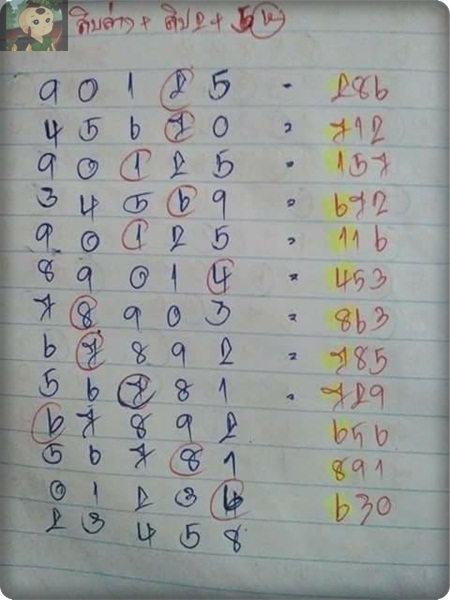 สิบล่าง + สิบ 2 + 5
9 0 1 2 5 - 286
4 5 6 7 0 = 712
9 0 1 2 5 = 157
3 4 5 6 9 = 672
9 0 1 2 5 = 116
8 9 0 1 4 = 453
7 8 9 0 3 = 863
6 7 8 9 2 = 785
5 6 7 8 1 = 729
6 7 8 9 2 656
5 6 7 8 1 891
0 1 2 3 6 630
2 3 4 5 8